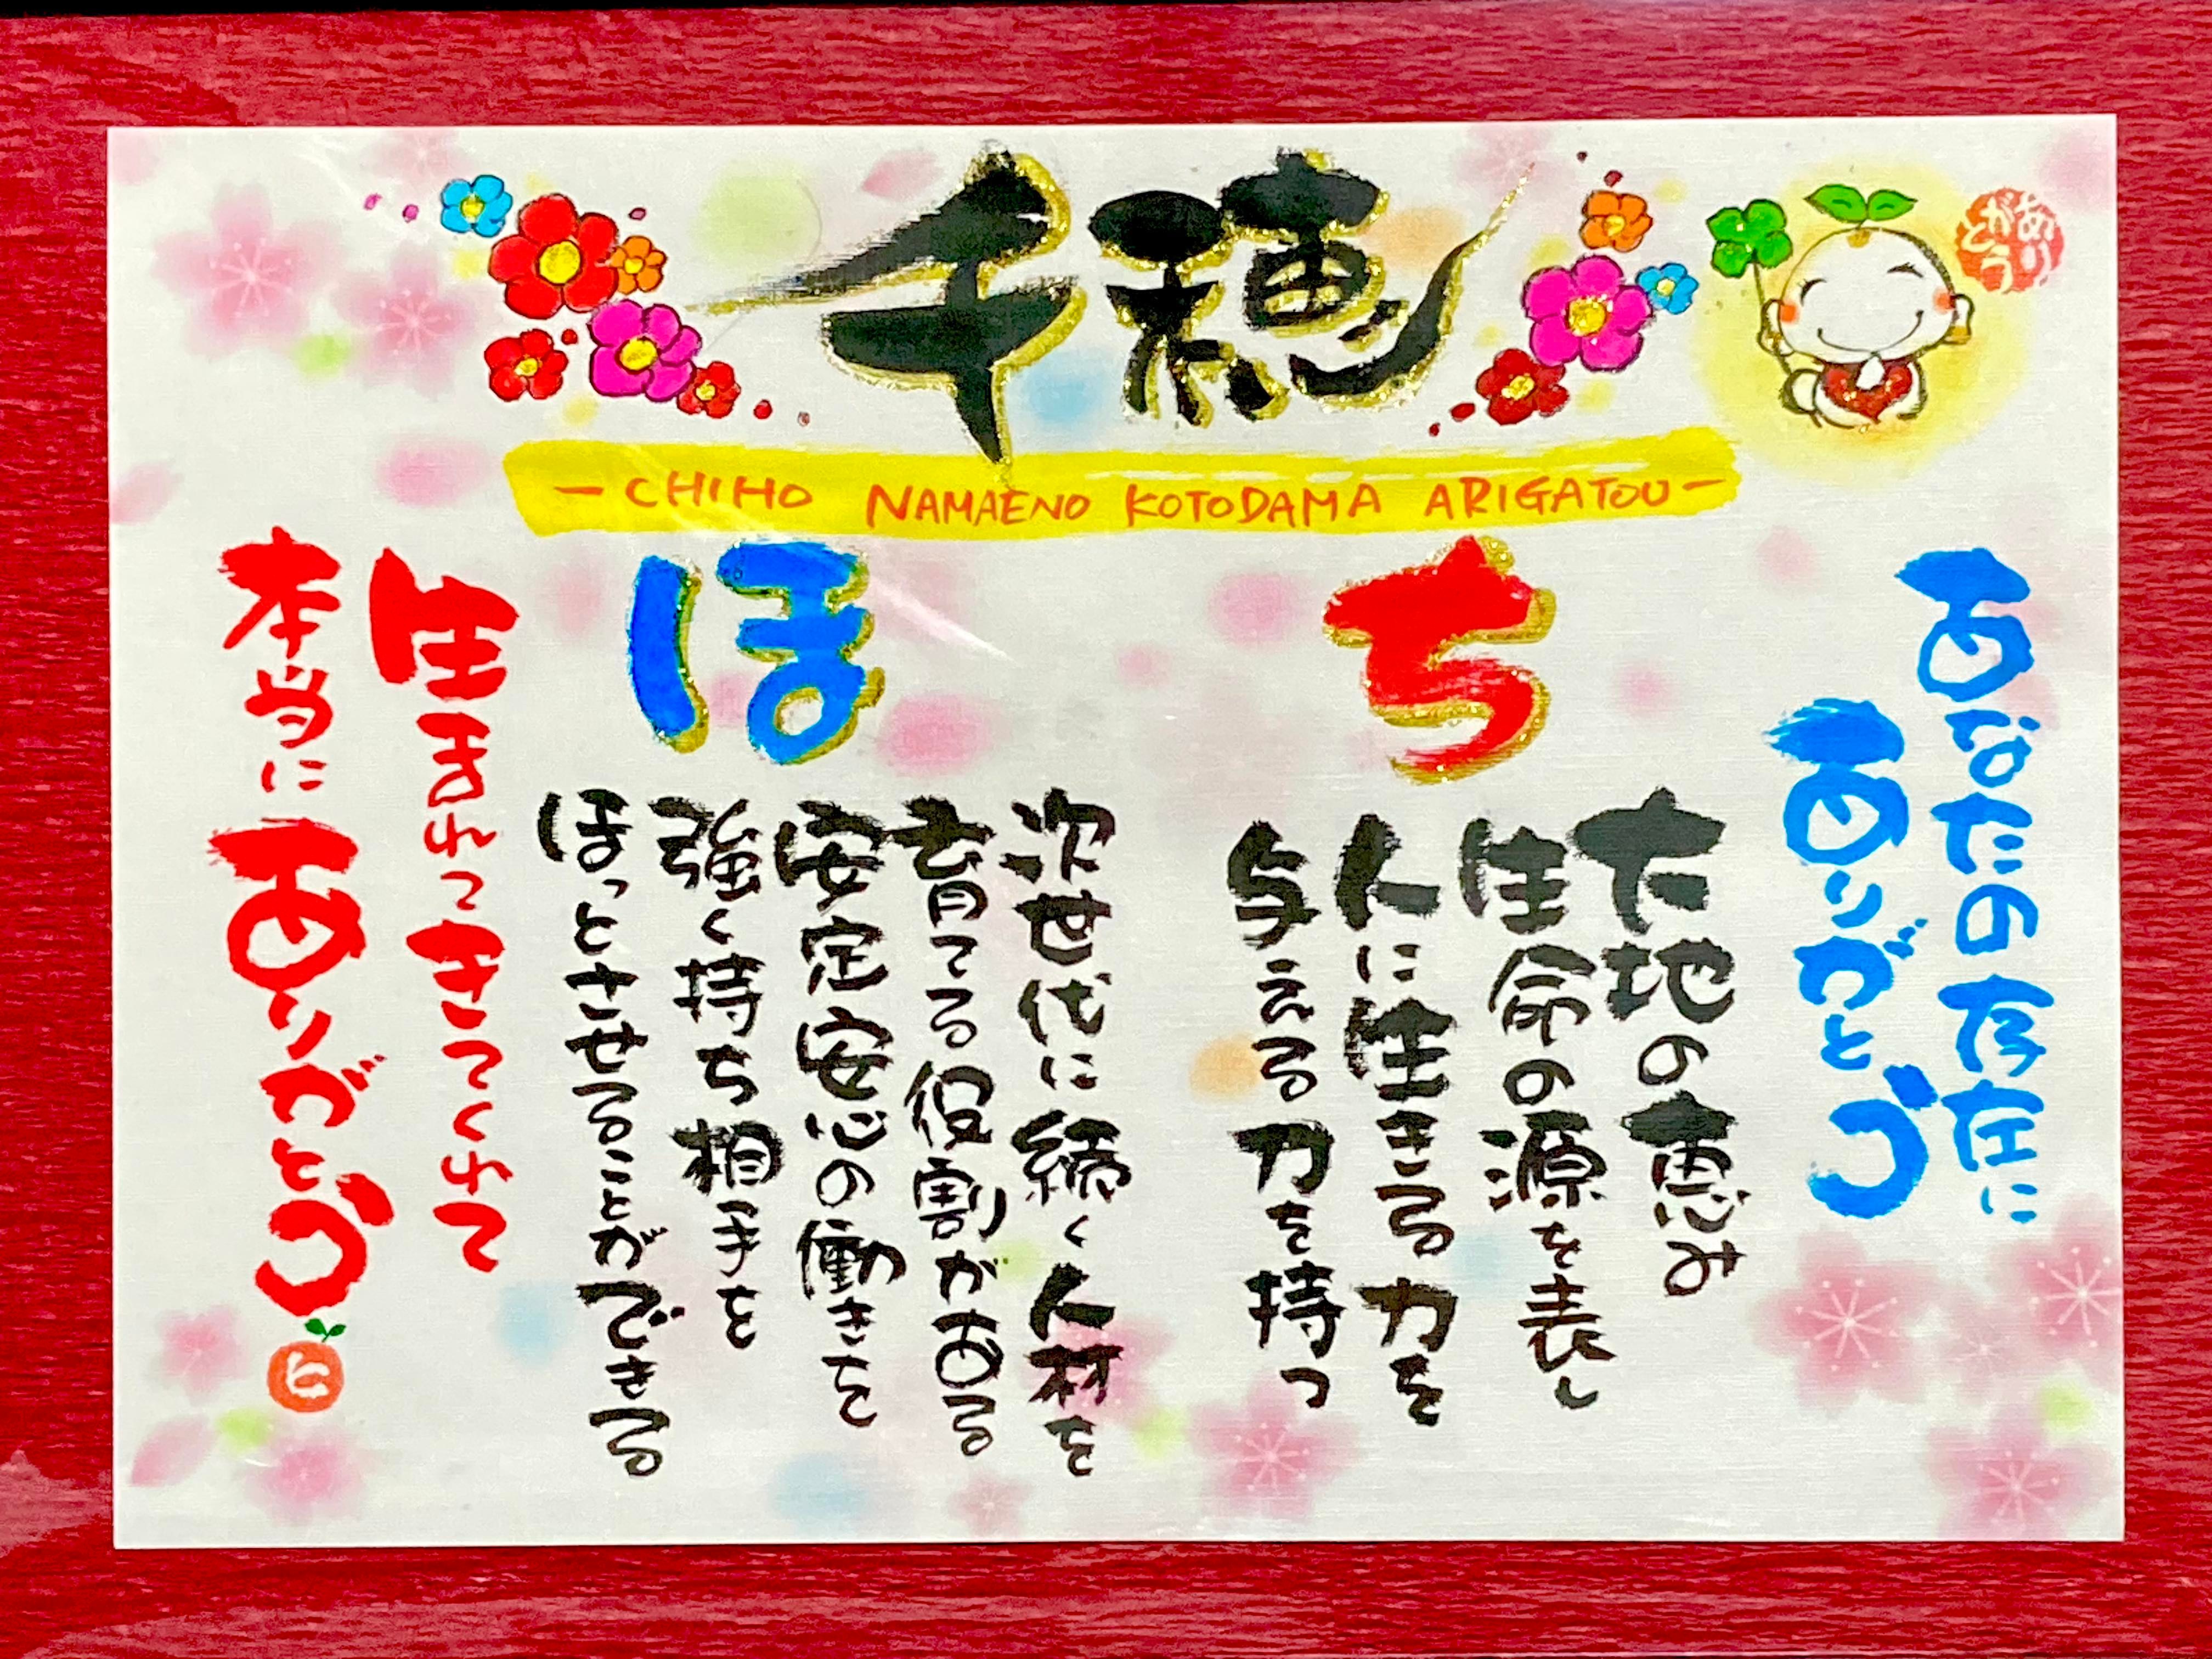 千穂
ありがとう
－CHIHO NAMAENO KOTODAMA ARIGATOU－
あなたの存在に
ありがとう
ち
大地の恵み
生命の源を表し
人に生きる力を
与える力を持つ
ほ
次世代に続く人材を
育てる役割がある
安定安心の働きを
強く持ち相手を
ほっとさせることができる
生まれてきてくれて
本当にありがとう
と